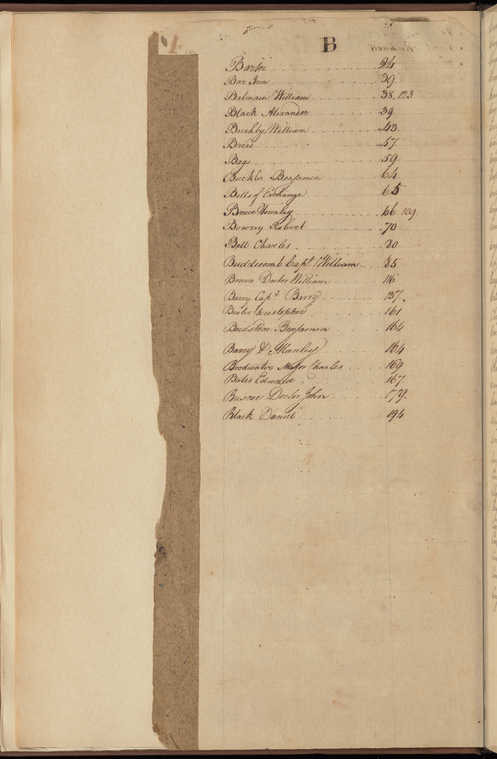 B
Barter 24
Bar Iron 39
Balmain William 38, 123
Black Alexander 39
Bushby William 43
Bread 57
Bags 59
Buckler Benjamin 64
Bills of Exchange 65
Bruce 66 109
Bowrey Robert 70
Bell Charles 80
Buddicomb Capt. William 85
Brown Doctor William 116
Barry Capt. Barry 137
Christopher 161
Benjamin 164
Barry & Manley 164
Brodwater Major Charles 169
Bates Edward 167
Briscoe Doctor John 179
Black Daniel 194